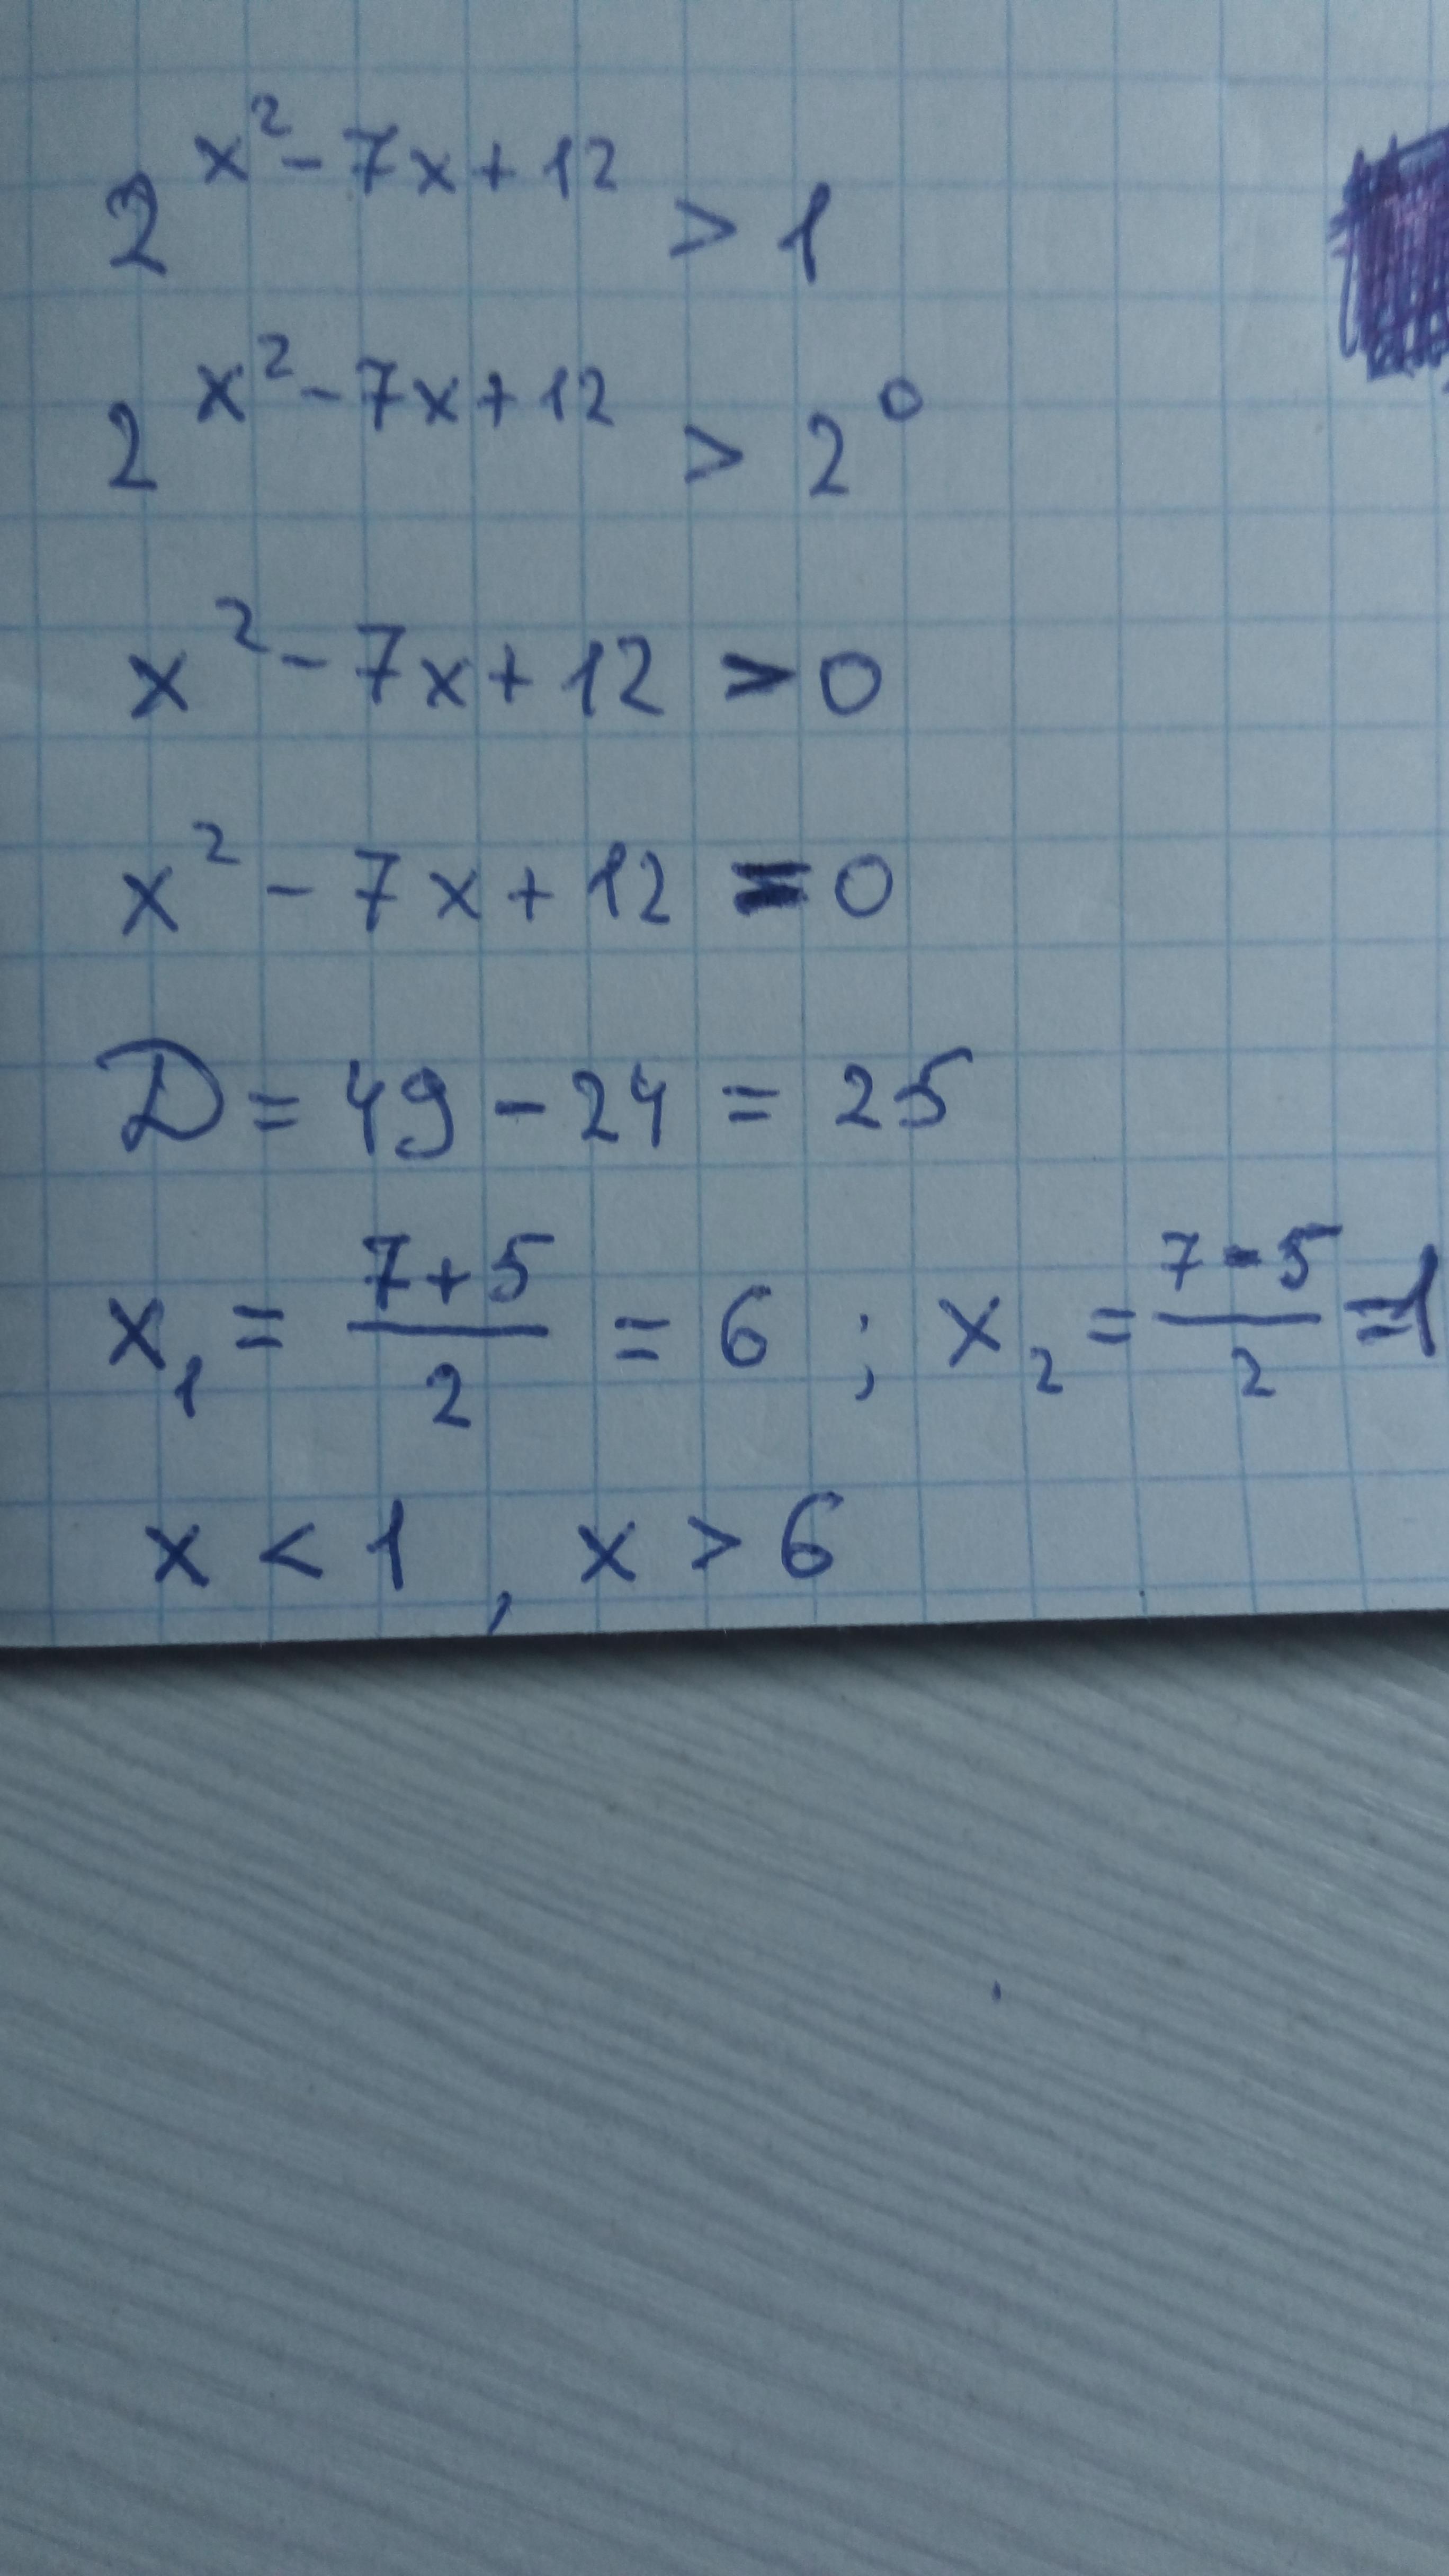 2^{x²-7x+12} > 1
2^{x²-7x+12} > 2⁰
x² - 7x + 12 > 0
x² - 7x + 12 = 0
D = 49 - 24 = 25
x₁ = \frac{7+5}{2} = 6 ; x₂ = \frac{7-5}{2} = 1
x < 1 , x > 6